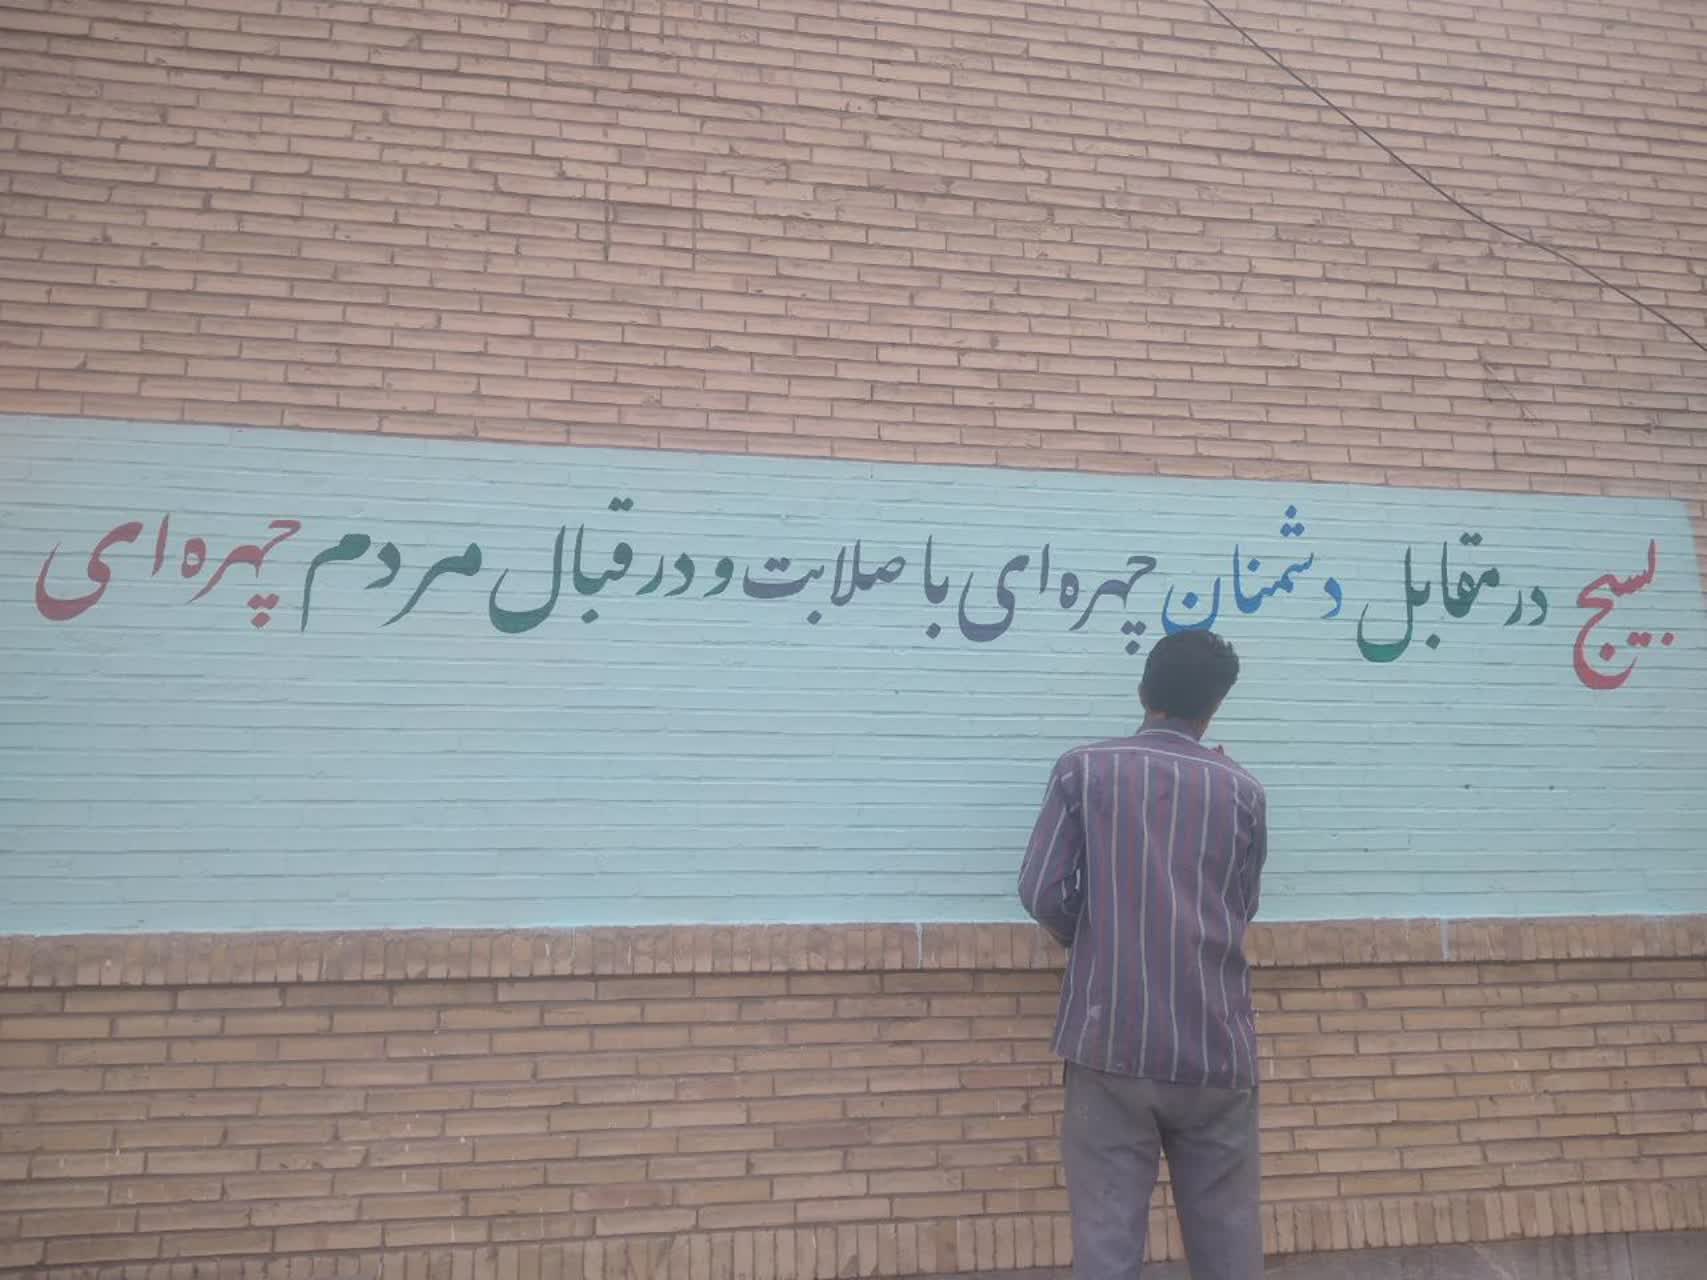 بسیج در مقابل دشمنان چهره ای با صلابت و در قبال مردم چهره ای